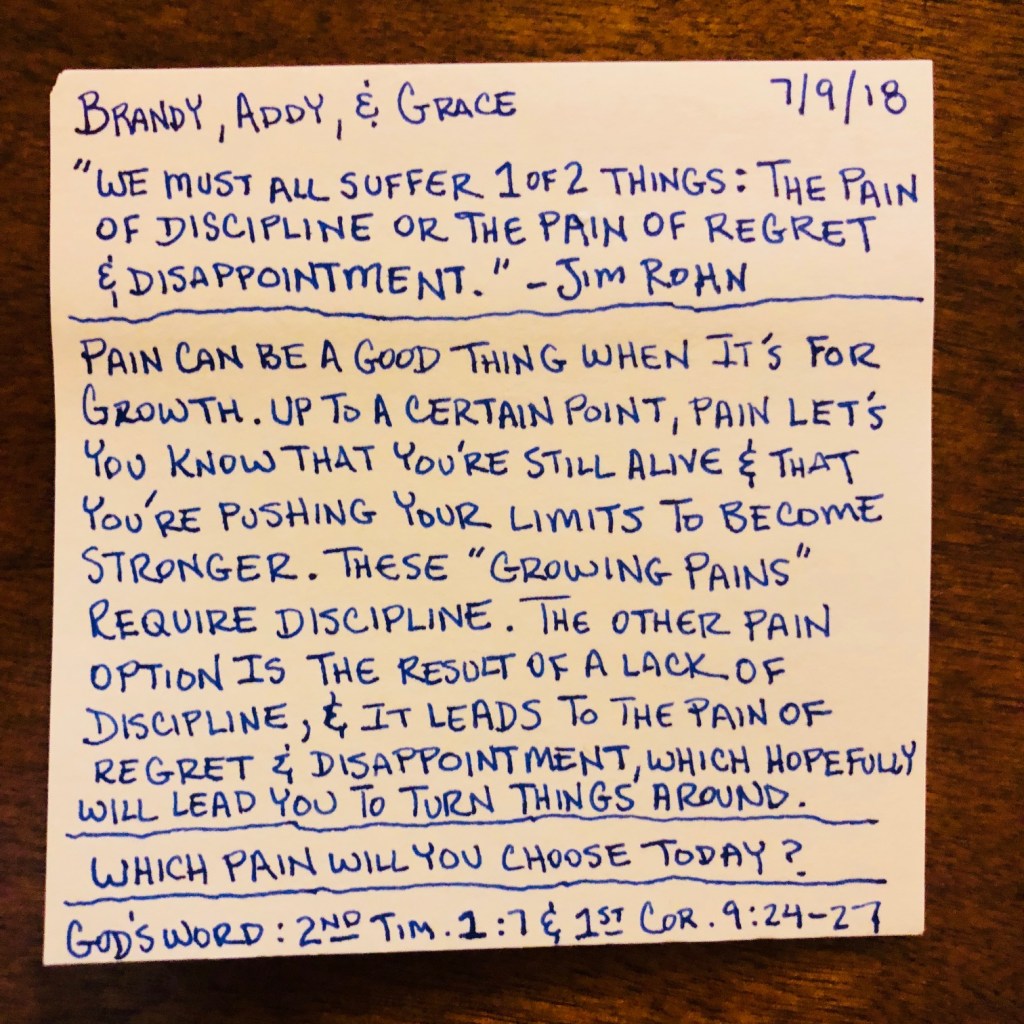 BRANDY, ADDY, & GRACE 7/9/18
"WE MUST ALL SUFFER 1 OF 2 THINGS: THE PAIN
OF DISCIPLINE OR THE PAIN OF REGRET
& DISAPPOINTMENT." - JIM ROHN
PAIN CAN BE A GOOD THING WHEN IT'S FOR
GROWTH. UP TO A CERTAIN POINT, PAIN LET'S
YOU KNOW THAT YOU'RE STILL ALIVE & THAT
YOU'RE PUSHING YOUR LIMITS TO BECOME
STRONGER. THESE "GROWING PAINS"
REQUIRE DISCIPLINE. THE OTHER PAIN
OPTION IS THE RESULT OF A LACK OF
DISCIPLINE, & IT LEADS TO THE PAIN OF
REGRET & DISAPPOINTMENT, WHICH HOPEFULLY
WILL LEAD YOU TO TURN THINGS AROUND.
WHICH PAIN WILL YOU CHOOSE TODAY?
GOD'S WORD: 2ND TIM. 1:7 & 1ST COR. 9:24-27